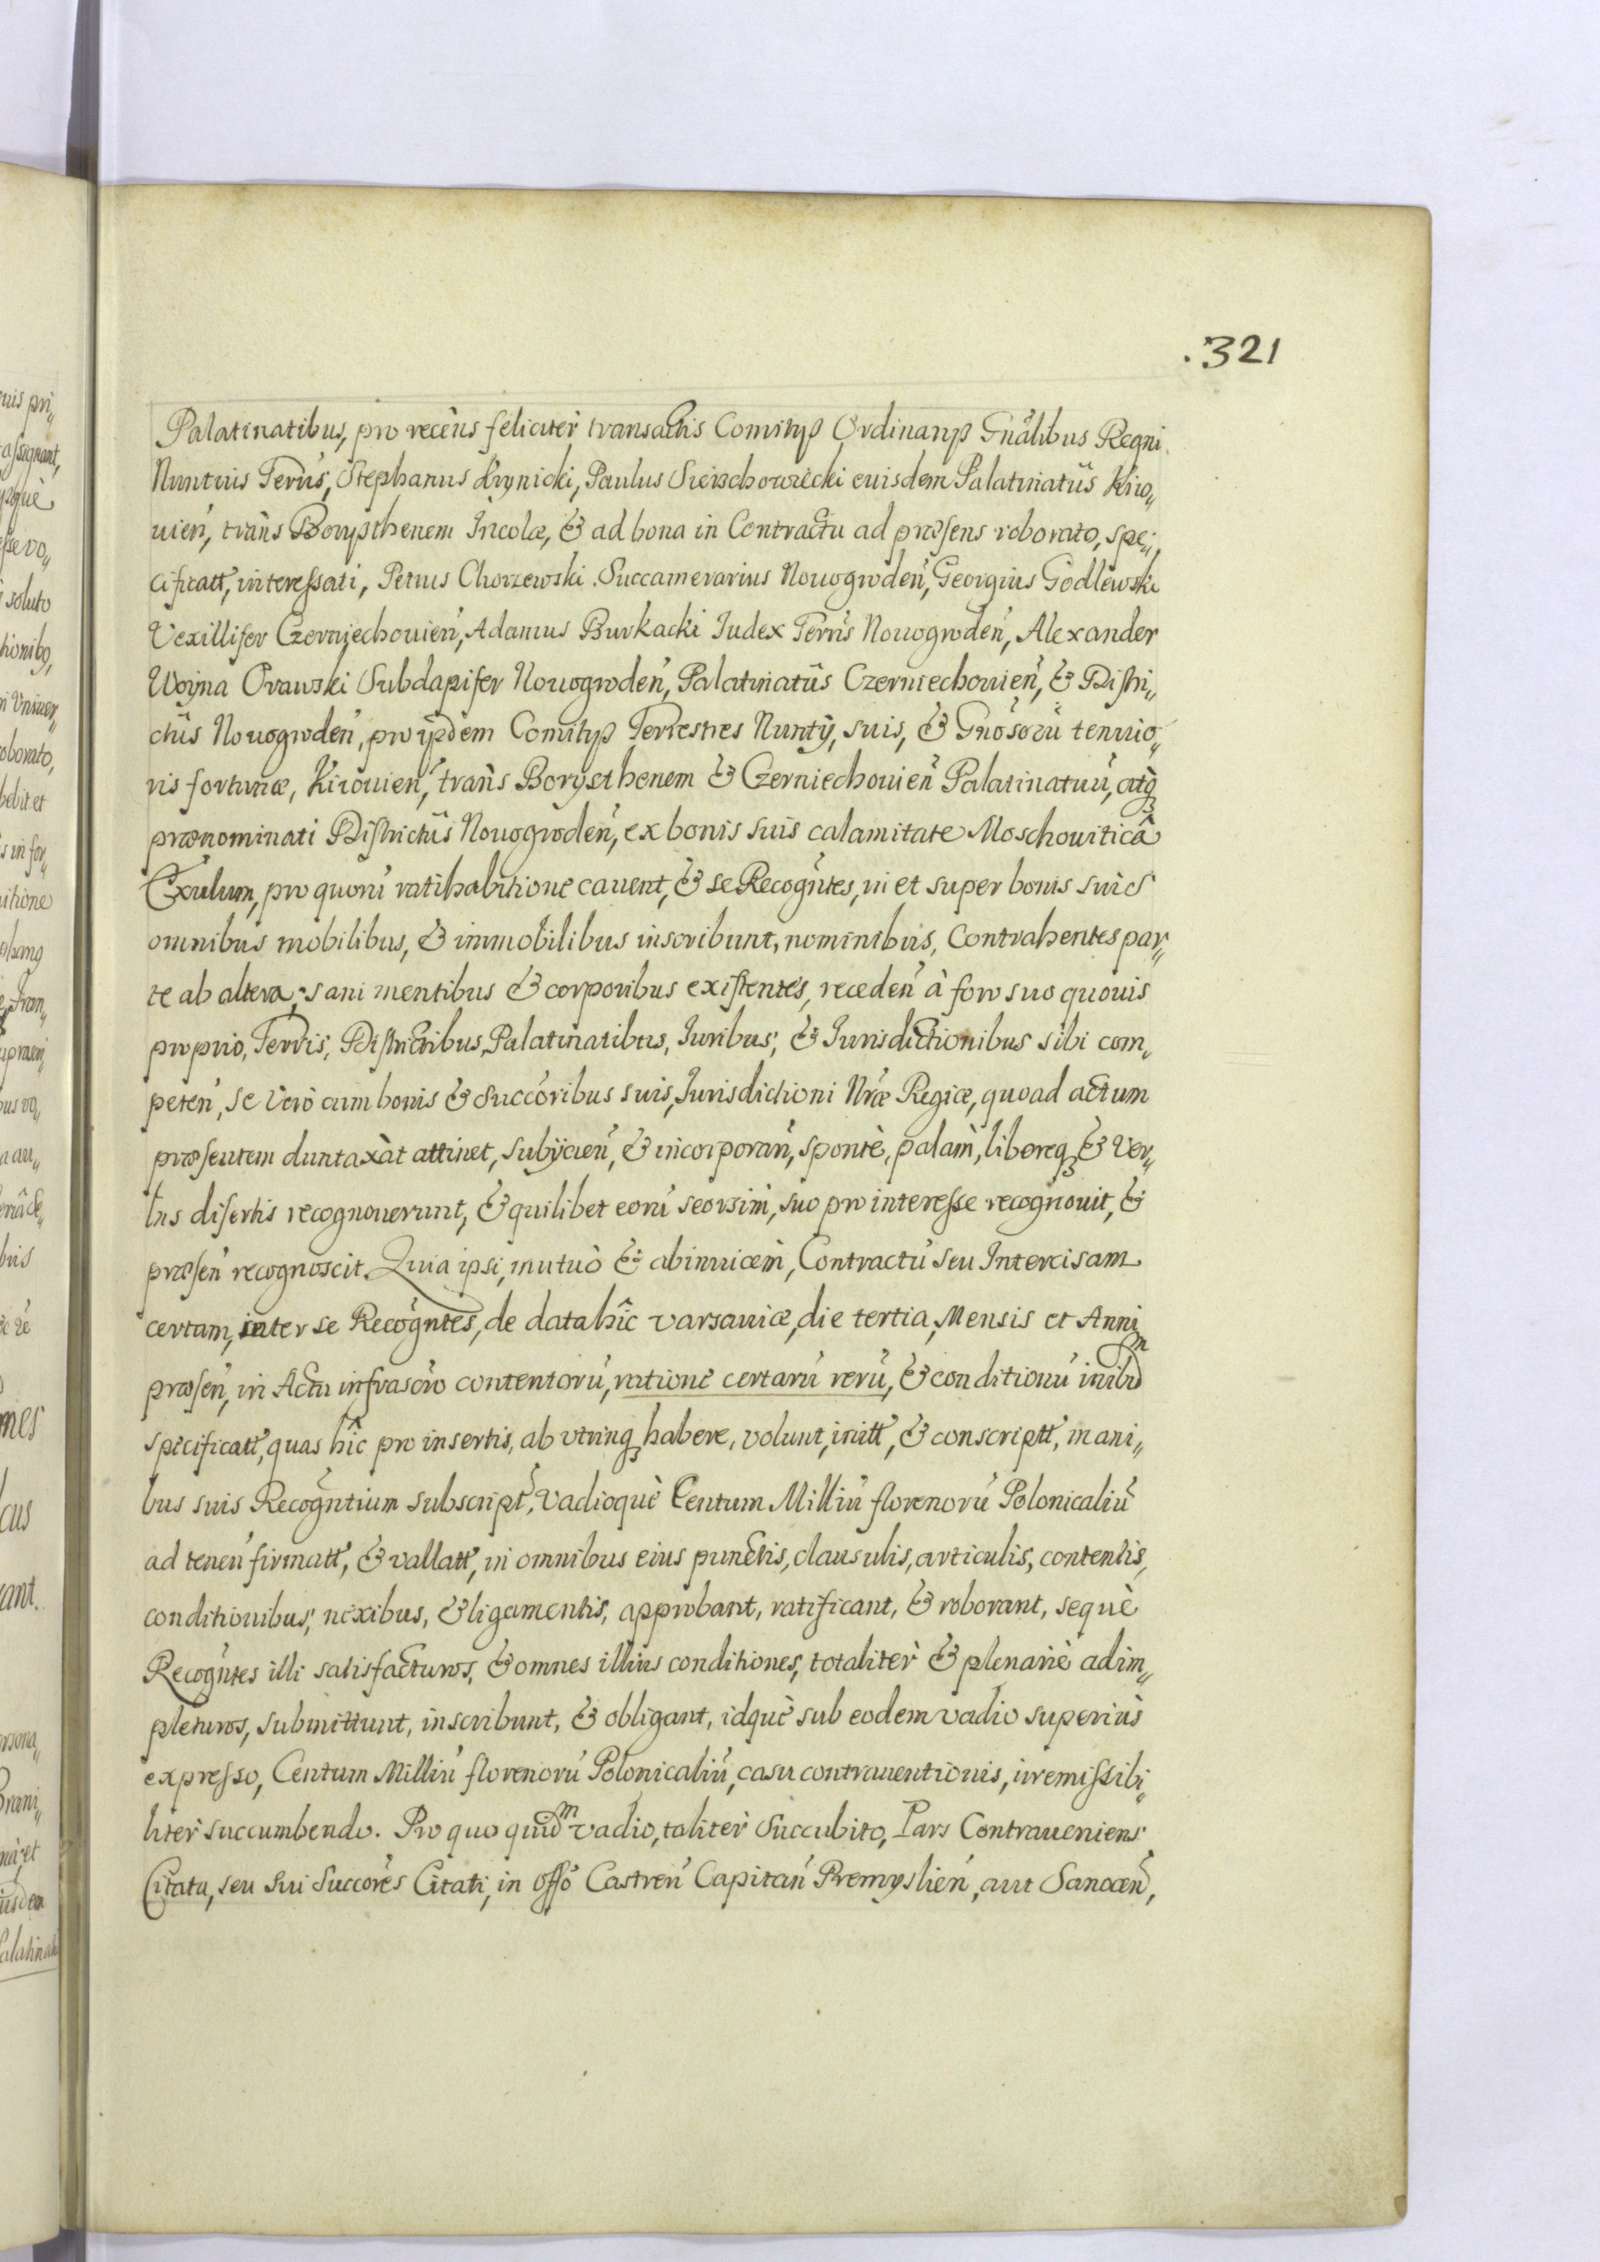 .321
Palatinatibus, pro recèns feliciter transactis Comitijs Ordinarijs Gnãlibus Regni
Nuntius Terris, Stephanus Krynicki, Paulus euisdem Palatinatûs Kiio„
uień, trans Borysthenem Incolæ, & ad bona in Contractu ad præsens roborato, spe„
cificatt, interessati, Petrus Chorzewski Succamerarius Nouogroden, Georgius Godlewski
Vexillifer Czerniechouień, Adamus Burkacki Iudex Terris Nouogroden, Alexander
Woyna Orauski Subdapifer Nouogroden, Palatinatûs Czerniechouień, & Distri„
ctûs Nouogroden, pro ijsdem Comitijs Terrestres Nuntij, suis, & Gnosorũ tenuio„
ris fortunæ, Kiiouień, trans Borysthenem & Czerniechouień Palatinatuũ, atq̀
prænominati Districtûs Nouogroden, ex bonis suis calamitate Moschouiticâ
Exulum, pro quorũ ratihabitione cauent, & se Recogntes, in et super bonis suis
omnibus mobilibus, & immobilibus inscribunt, nominibus, Contrahentes par„
te ab altera, sani mentibus & corporibus existentes, receden à foro suo quouis
proprio, Terris, Districtibus, Palatinatibus, Iuribus, & Iurisdictionibus sibi com„
peten, se verò cum bonis & Succoribus suis, Iurisdictioni Nræ Regiæ, quoad actum
præsentem duntaxàt attinet, subijcien, & incorporan, spontè, palàm, libereq & Ver„
bis disertis recognouerunt, & quilibet eorũ seorsim, suo pro interesse recognouit, &
præsen recognoscit. Quia ipsi, mutuò & abinuicem, Contractũ seu Intercisam
certam, inter se Recogntes, de data hîc Varsauiæ, die tertia, Mensis et Anni
præsen, in Actu infrascro contentorũ, ratione certarũ rerũ, & conditionũ inibdm
specificatt, quas hîc pro insertis, ab vtrinq habere, volunt, initt, & conscriptt, mani„
bus suis Recogntium subscript, Vadioquè Centum Milliũ florenorũ Polonicaliũ
ad tenen firmatt, & vallatt, in omnibus eius punctis, clausulis, articulis, contentis,
conditionibus, nexibus, & ligamentis, approbant, ratificant, & roborant, sequè
Recogntes illi satisfacturos, & omnes illius conditiones, totaliter & plenariè adim„
pleturos, submittunt, inscribunt, & obligant, idquè sub eodem vadio superiùs
expresso, Centum Milliũ florenorũ Polonicaliũ, casu contrauentionis, irremissibi„
liter succumbendo. Pro quo quidm vadio, taliter Succubito, Pars Contraueniens
Citata, seu sui Succores Citati, in Offo Castren Capitan Premyslien, aut Sanocen,